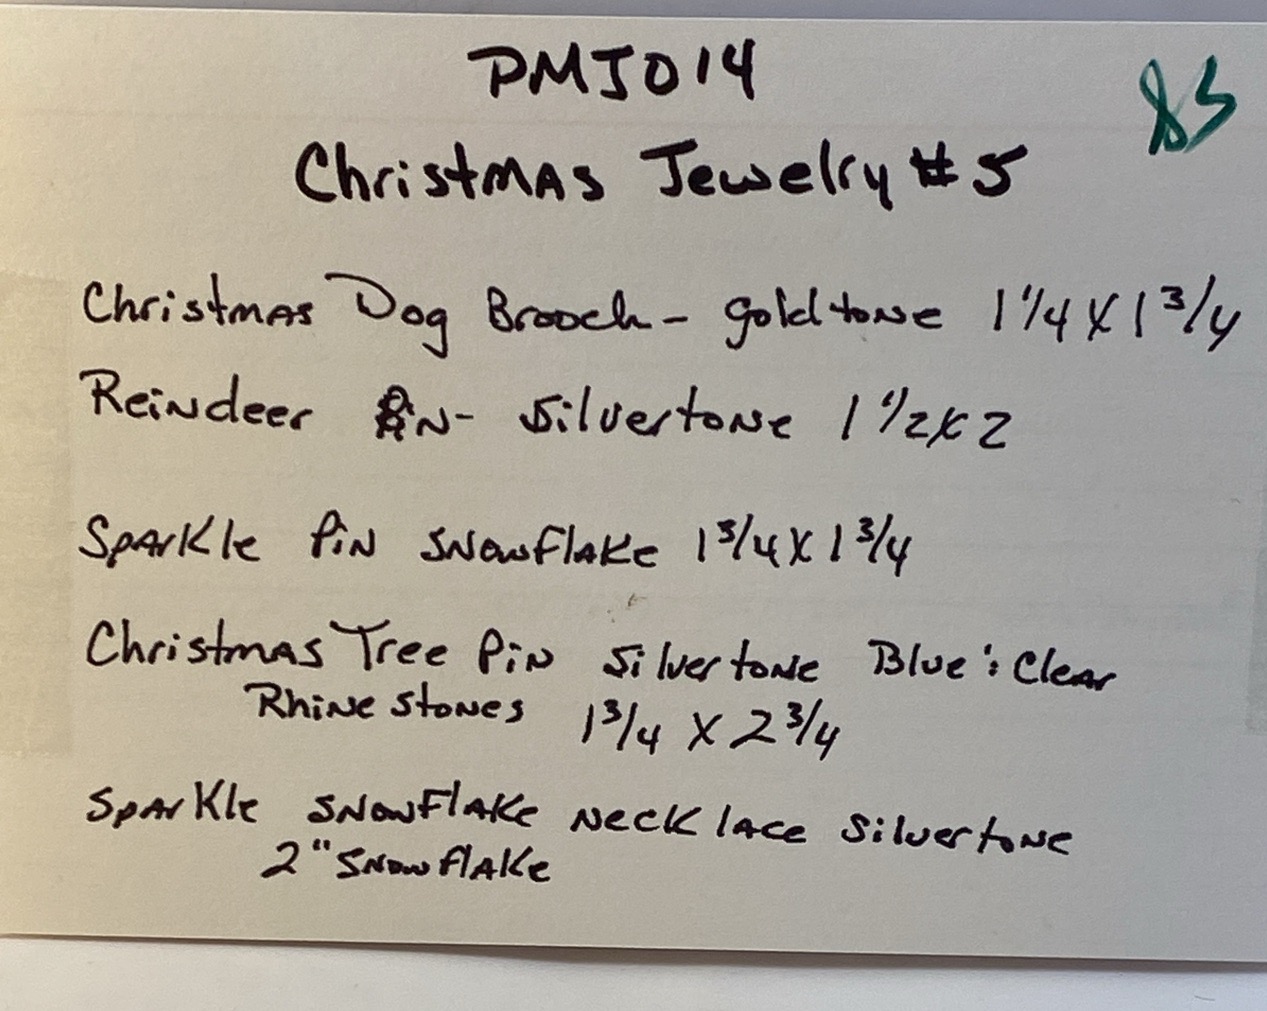 PMJ014
85
Christmas Jewelry #5
Christmas Dog Brooch - goldtone 1 1/4 X 1 3/4
Reindeer Pin - Silvertone 1 1/2 X 2
Sparkle Pin Snowflake 1 3/4 X 1 3/4
Christmas Tree Pin Silvertone Blue & Clear
Rhine stones 1 3/4 X 2 3/4
Sparkle Snowflake Necklace Silvertone
2" Snowflake